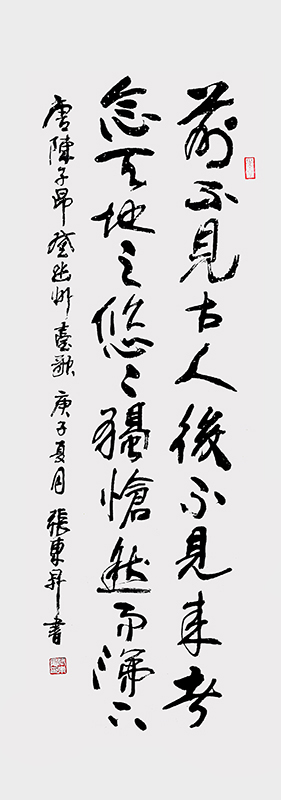 前不见古人後不见来者
念天地之悠々独愴然而涕下
唐陳子昂登幽州臺歌 庚子夏月 張東昇書